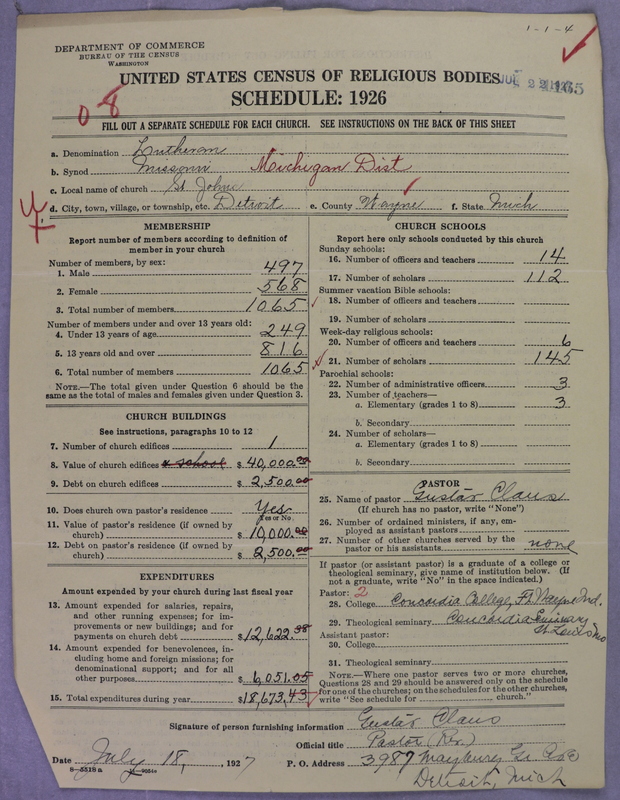 1-1-4
DEPARTMENT OF COMMERCE
BUREAU OF THE CENSUS
WASHINGTON
UNITED STATES CENSUS OF RELIGIOUS BODIES
SCHEDULE: 1926
0-8
FILL OUT A SEPARATE SCHEDULE FOR EACH CHURCH. SEE INSTRUCTIONS ON THE BACK OF THIS SHEET
a. Denomination Lutheran
b. Synod Missouri Michigan Dist
c. Local name of church St Johns
d. City, town, village, or township, etc. Detroit e. County Wayne f. State Mich
MEMBERSHIP
Report number of members according to definition of
member in your church
Number of members, by sex:
1. Male 497
2. Female 568
3. Total number of members 1065
Number of members under and over 13 years old:
4. Under 13 years of age 249
5. 13 years old and over 816
6. Total number of members 1065
NOTE.—The total given under Question 6 should be the
same as the total of males and females given under Question 3.
CHURCH BUILDINGS
See instructions, paragraphs 10 to 12
7. Number of church edifices 1
8. Value of church edifices & school $ 40,000.00
9. Debt on church edifices $ 2,500.00
10. Does church own pastor's residence? Yes
Yes or No
11. Value of pastor's residence (if owned by
church) $ 10,000.00
12. Debt on pastor's residence (if owned by
church) $ 2,500.00
EXPENDITURES
Amount expended by your church during last fiscal year
13. Amount expended for salaries, repairs,
and other running expenses; for im-
provements or new buildings; and for
payments on church debt $ 12,622.38
14. Amount expended for benevolences, in-
cluding home and foreign missions; for
denominational support; and for all
other purposes $ 6,051.05
15. Total expenditures during year $ 18,673.43
CHURCH SCHOOLS
Report here only schools conducted by this church
Sunday schools:
16. Number of officers and teachers 14
17. Number of scholars 112
Summer vacation Bible schools:
18. Number of officers and teachers
19. Number of scholars
Week-day religious schools:
20. Number of officers and teachers 6
21. Number of scholars 145
Parochial schools:
22. Number of administrative officers 3
23. Number of teachers—
a. Elementary (grades 1 to 8) 3
b. Secondary
24. Number of scholars—
a. Elementary (grades 1 to 8)
b. Secondary
PASTOR
25. Name of pastor Gustav Claus
(If church has no pastor, write "None")
26. Number of ordained ministers, if any, em-
ployed as assistant pastors
27. Number of other churches served by the
pastor or his assistants none
If pastor (or assistant pastor) is a graduate of a college or
theological seminary, give name of institution below. (If
not a graduate, write "No" in the space indicated.)
Pastor: 2
28. College Concordia College, Ft. Wayne Ind.
29. Theological seminary Concordia Seminary
St Louis Mo
Assistant pastor:
30. College
31. Theological seminary
NOTE.—Where one pastor serves two or more churches,
Questions 28 and 29 should be answered only on the schedule
for one of the churches; on the schedules for the other churches,
write "See schedule for church."
Signature of person furnishing information Gustav Claus
Official title Pastor (Rev.)
Date July 18, 1927 P. O. Address 3987 Maybury Gr. Ave
Detroit, Mich
8-5518a